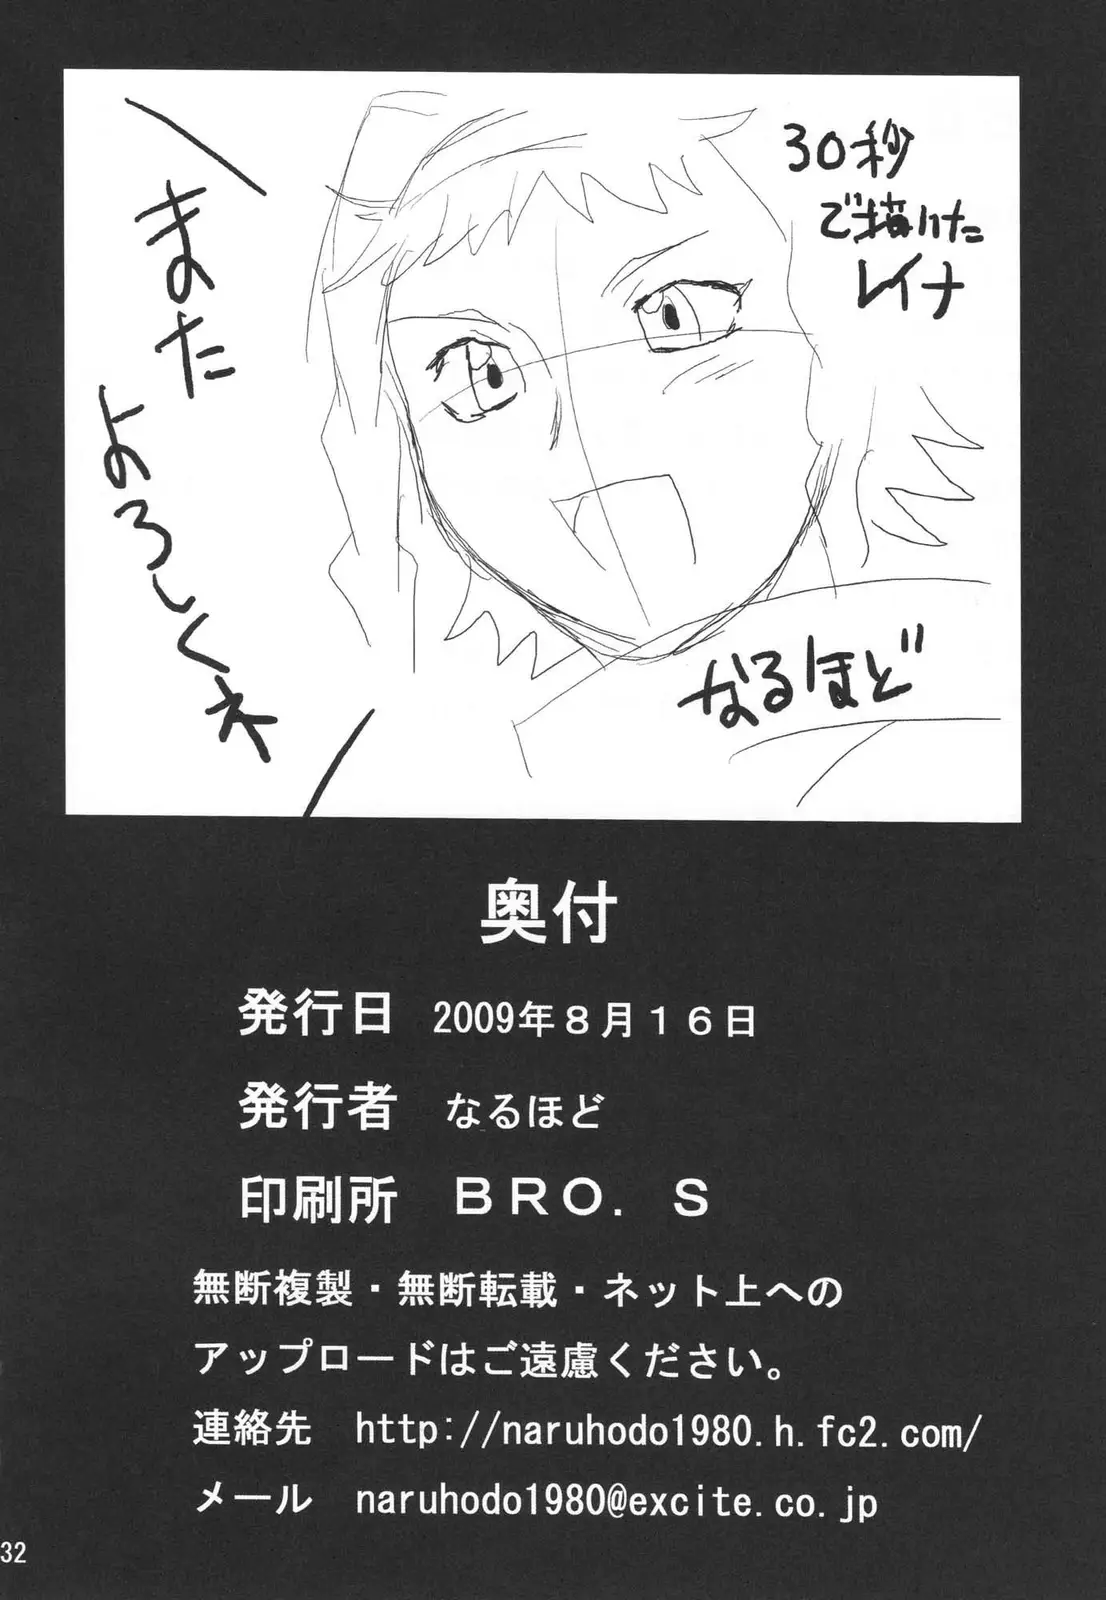 30秒
で描いた
レイナ
また
よろしくネ
なるほど
奥付
発行日 2009年８月１６日
発行者 なるほど
印刷所 ＢＲＯ．Ｓ
無断複製・無断転載・ネット上への
アップロードはご遠慮ください。
連絡先 http://naruhodo1980.h.fc2.com/
メール naruhodo1980@excite.co.jp
32